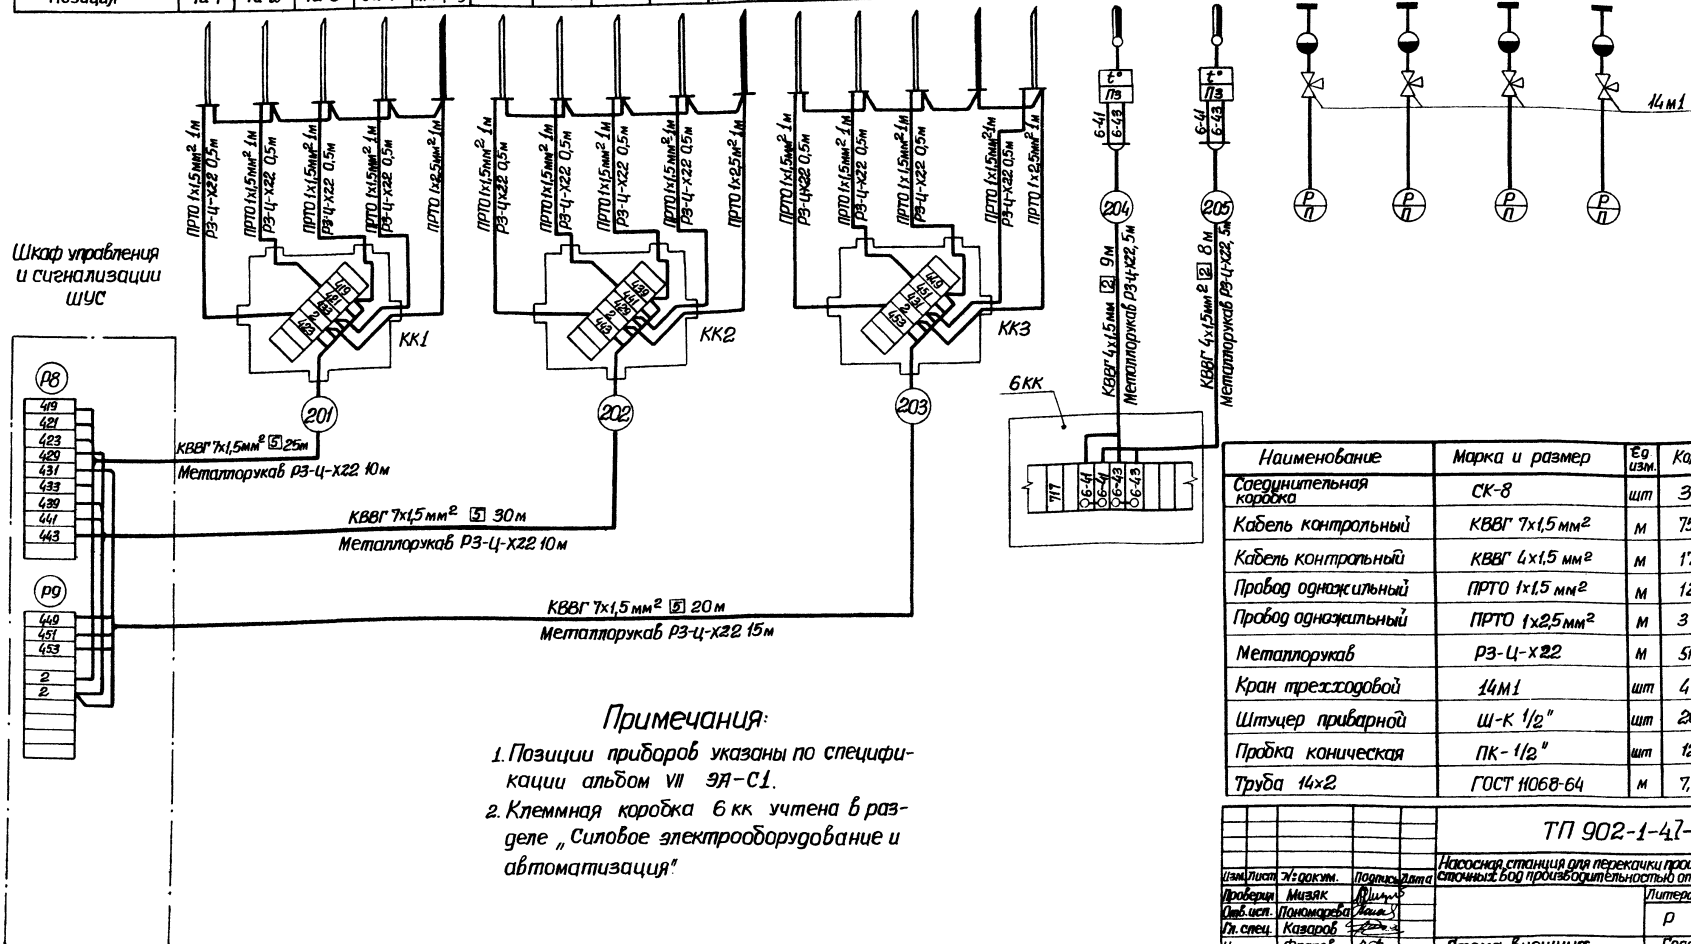 14м1
ПРТО 1х1,5мм² 1м
РЗ-Ц-Х22 0,5м
ПРТО 1х1,5мм² 1м
РЗ-Ц-Х22 0,5м
ПРТО 1х1,5мм² 1м
РЗ-Ц-Х22 0,5м
ПРТО 1х1,5мм² 1м
РЗ-Ц-Х22 0,5м
ПРТО 1х2,5мм² 1м
ПРТО 1х1,5мм² 1м
РЗ-Ц-Х22 0,5м
ПРТО 1х1,5мм² 1м
РЗ-Ц-Х22 0,5м
ПРТО 1х1,5мм² 1м
РЗ-Ц-Х22 0,5м
ПРТО 1х1,5мм² 1м
РЗ-Ц-Х22 0,5м
ПРТО 1х2,5мм² 1м
ПРТО 1х1,5мм² 1м
РЗ-Ц-Х22 0,5м
ПРТО 1х1,5мм² 1м
РЗ-Ц-Х22 0,5м
ПРТО 1х1,5мм² 1м
РЗ-Ц-Х22 0,5м
ПРТО 1х1,5мм² 1м
РЗ-Ц-Х22 0,5м
ПРТО 1х2,5мм² 1м
t°
П3
6-41
6-43
t°
П3
6-41
6-43
204
205
Р
П
Р
П
Р
П
Р
П
КВВГ 4х1,5мм 2 9м
Металлорукав РЗ-Ц-Х22, 5м
КВВГ 4х1,5мм² 2 8м
Металлорукав РЗ-Ц-Х22, 5м
Шкаф управления
и сигнализации
ШУС
419
421
433
2
423
КК1
439
441
429
2
443
КК2
449
451
431
2
453
КК3
201
202
203
Р8
419
421
423
429
431
433
439
441
443
Р9
449
451
453
2
2
КВВГ 7х1,5мм² 5 25м
Металлорукав РЗ-Ц-Х22 10м
КВВГ 7х1,5мм² 5 30м
Металлорукав РЗ-Ц-Х22 10м
КВВГ 7х1,5мм² 5 20м
Металлорукав РЗ-Ц-Х22 15м
6 КК
717
6-41
6-41
6-43
6-43
Примечания:
1. Позиции приборов указаны по специфи-
кации альбом VII ЭА-С1.
2. Клеммная коробка 6 кк учтена в раз-
деле „Силовое электрооборудование и
автоматизация"
Наименование Марка и размер Ед. изм.
Соединительная коробка СК-8 шт 3
Кабель контрольный КВВГ 7х1,5 мм² м 75
Кабель контрольный КВВГ 4х1,5 мм² м 17
Провод одножильный ПРТО 1х1,5 мм² м 12
Провод одножильный ПРТО 1х2,5мм² м 3
Металлорукав РЗ-Ц-Х22 м
Кран трехходовой 14М1 шт 4
Штуцер приварной Ш-К 1/2" шт
Пробка коническая ПК-1/2" шт 12
Труба 14х2 ГОСТ 11068-64 м 7,
ТП 902-1-47-
Насосная станция для перекачки
сточных вод производительностью от
Изм. Лист № докум. Подпись Дата
Проверил Мизяк
Отв. исп. Пономарева
Гл. спец. Казаров
Р